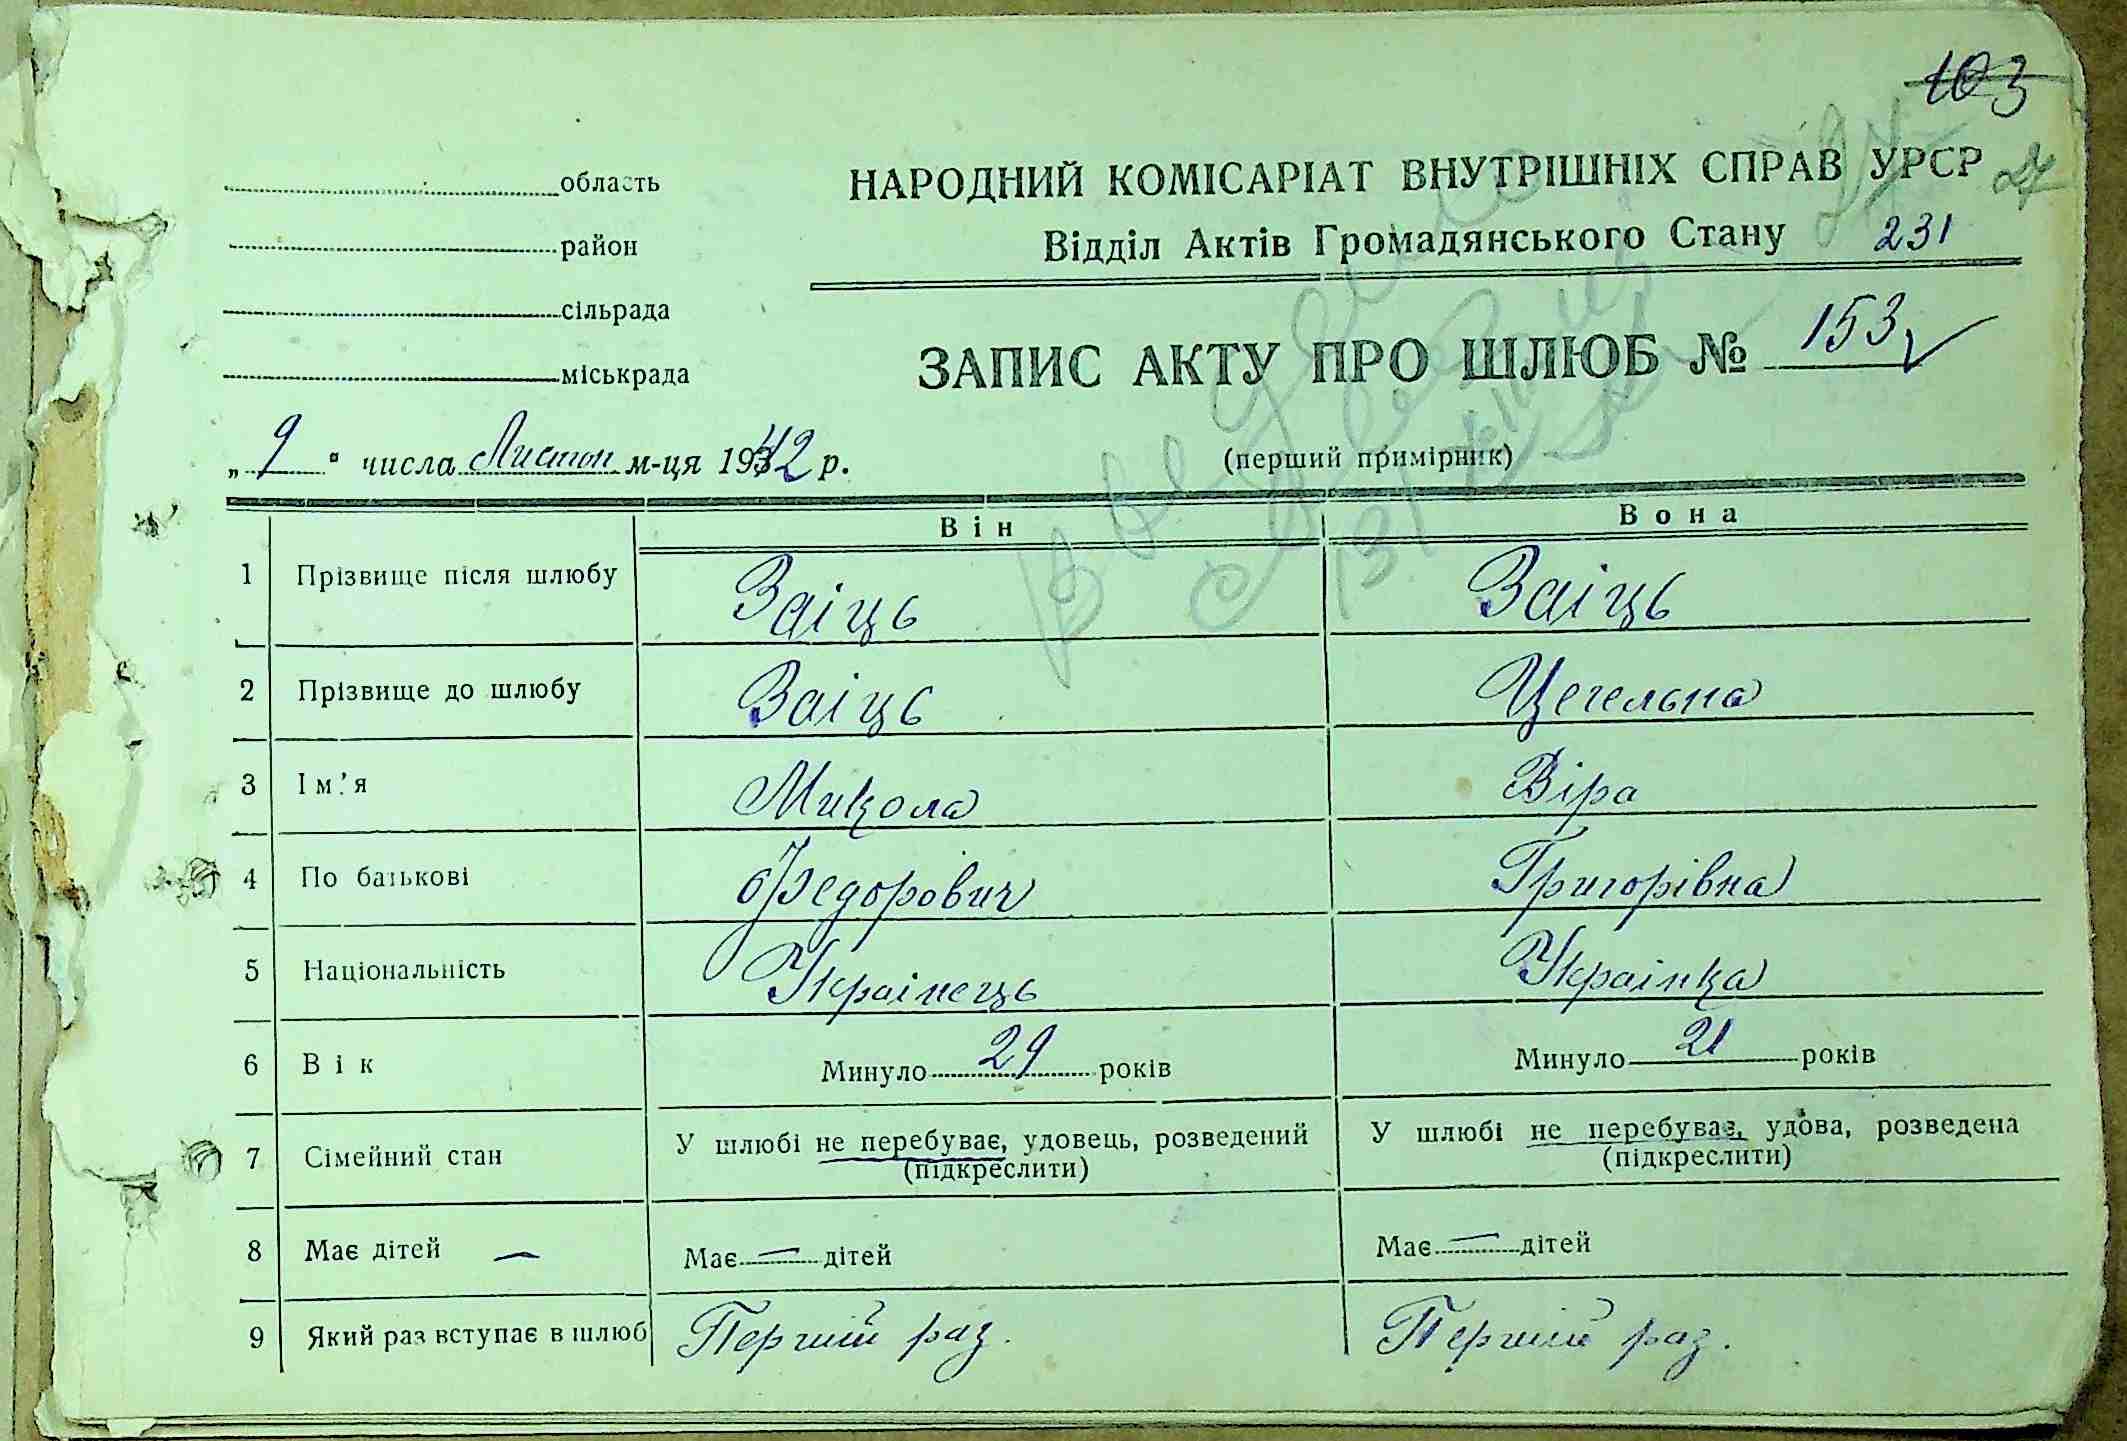 103
27
область
НАРОДНИЙ КОМІСАРІАТ ВНУТРІШНІХ СПРАВ УРСР
район
Відділ Актів Громадянського Стану 231
сільрада
міськрада
ЗАПИС АКТУ ПРО ШЛЮБ № 153
„ 9 " числа Листоп м-ця 1942 р.
(перший примірник)
Він Вона
1 Прізвище після шлюбу Заіць Заіць
2 Прізвище до шлюбу Заіць Цегельна
3 Ім'я Микола Віра
4 По батькові Федорович Григорівна
5 Національність Украінець Украінка
6 Вік Минуло 29 років Минуло 21 років
7 Сімейний стан У шлюбі не перебуває, удовець, розведений У шлюбі не перебуває, удова, розведена
(підкреслити) (підкреслити)
8 Має дітей — Має — дітей Має — дітей
9 Який раз вступає в шлюб Перший раз. Перший раз.